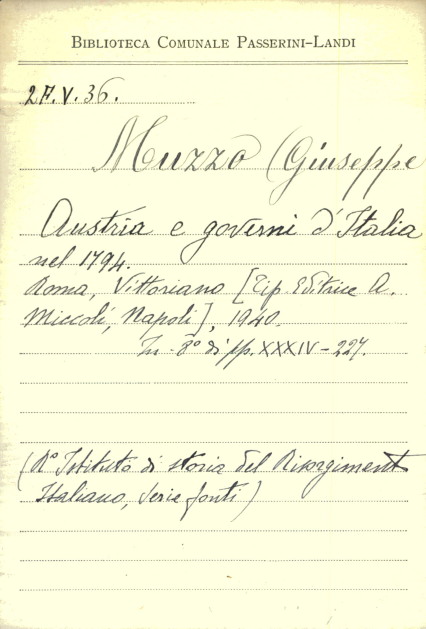 BIBLIOTECA COMUNALE PASSERINI-LANDI
27.V.36.
Muzzo (Giuseppe
Austria e governi d'Italia
nel 1794.
Roma, Vittoriano [Tip. Editrice A.
Miccoli, Napoli], 1940.
In - 8° di pp. XXXIV-227.
(R° Istituto di storia del Risorgiment
Italiano, Serie fonti)